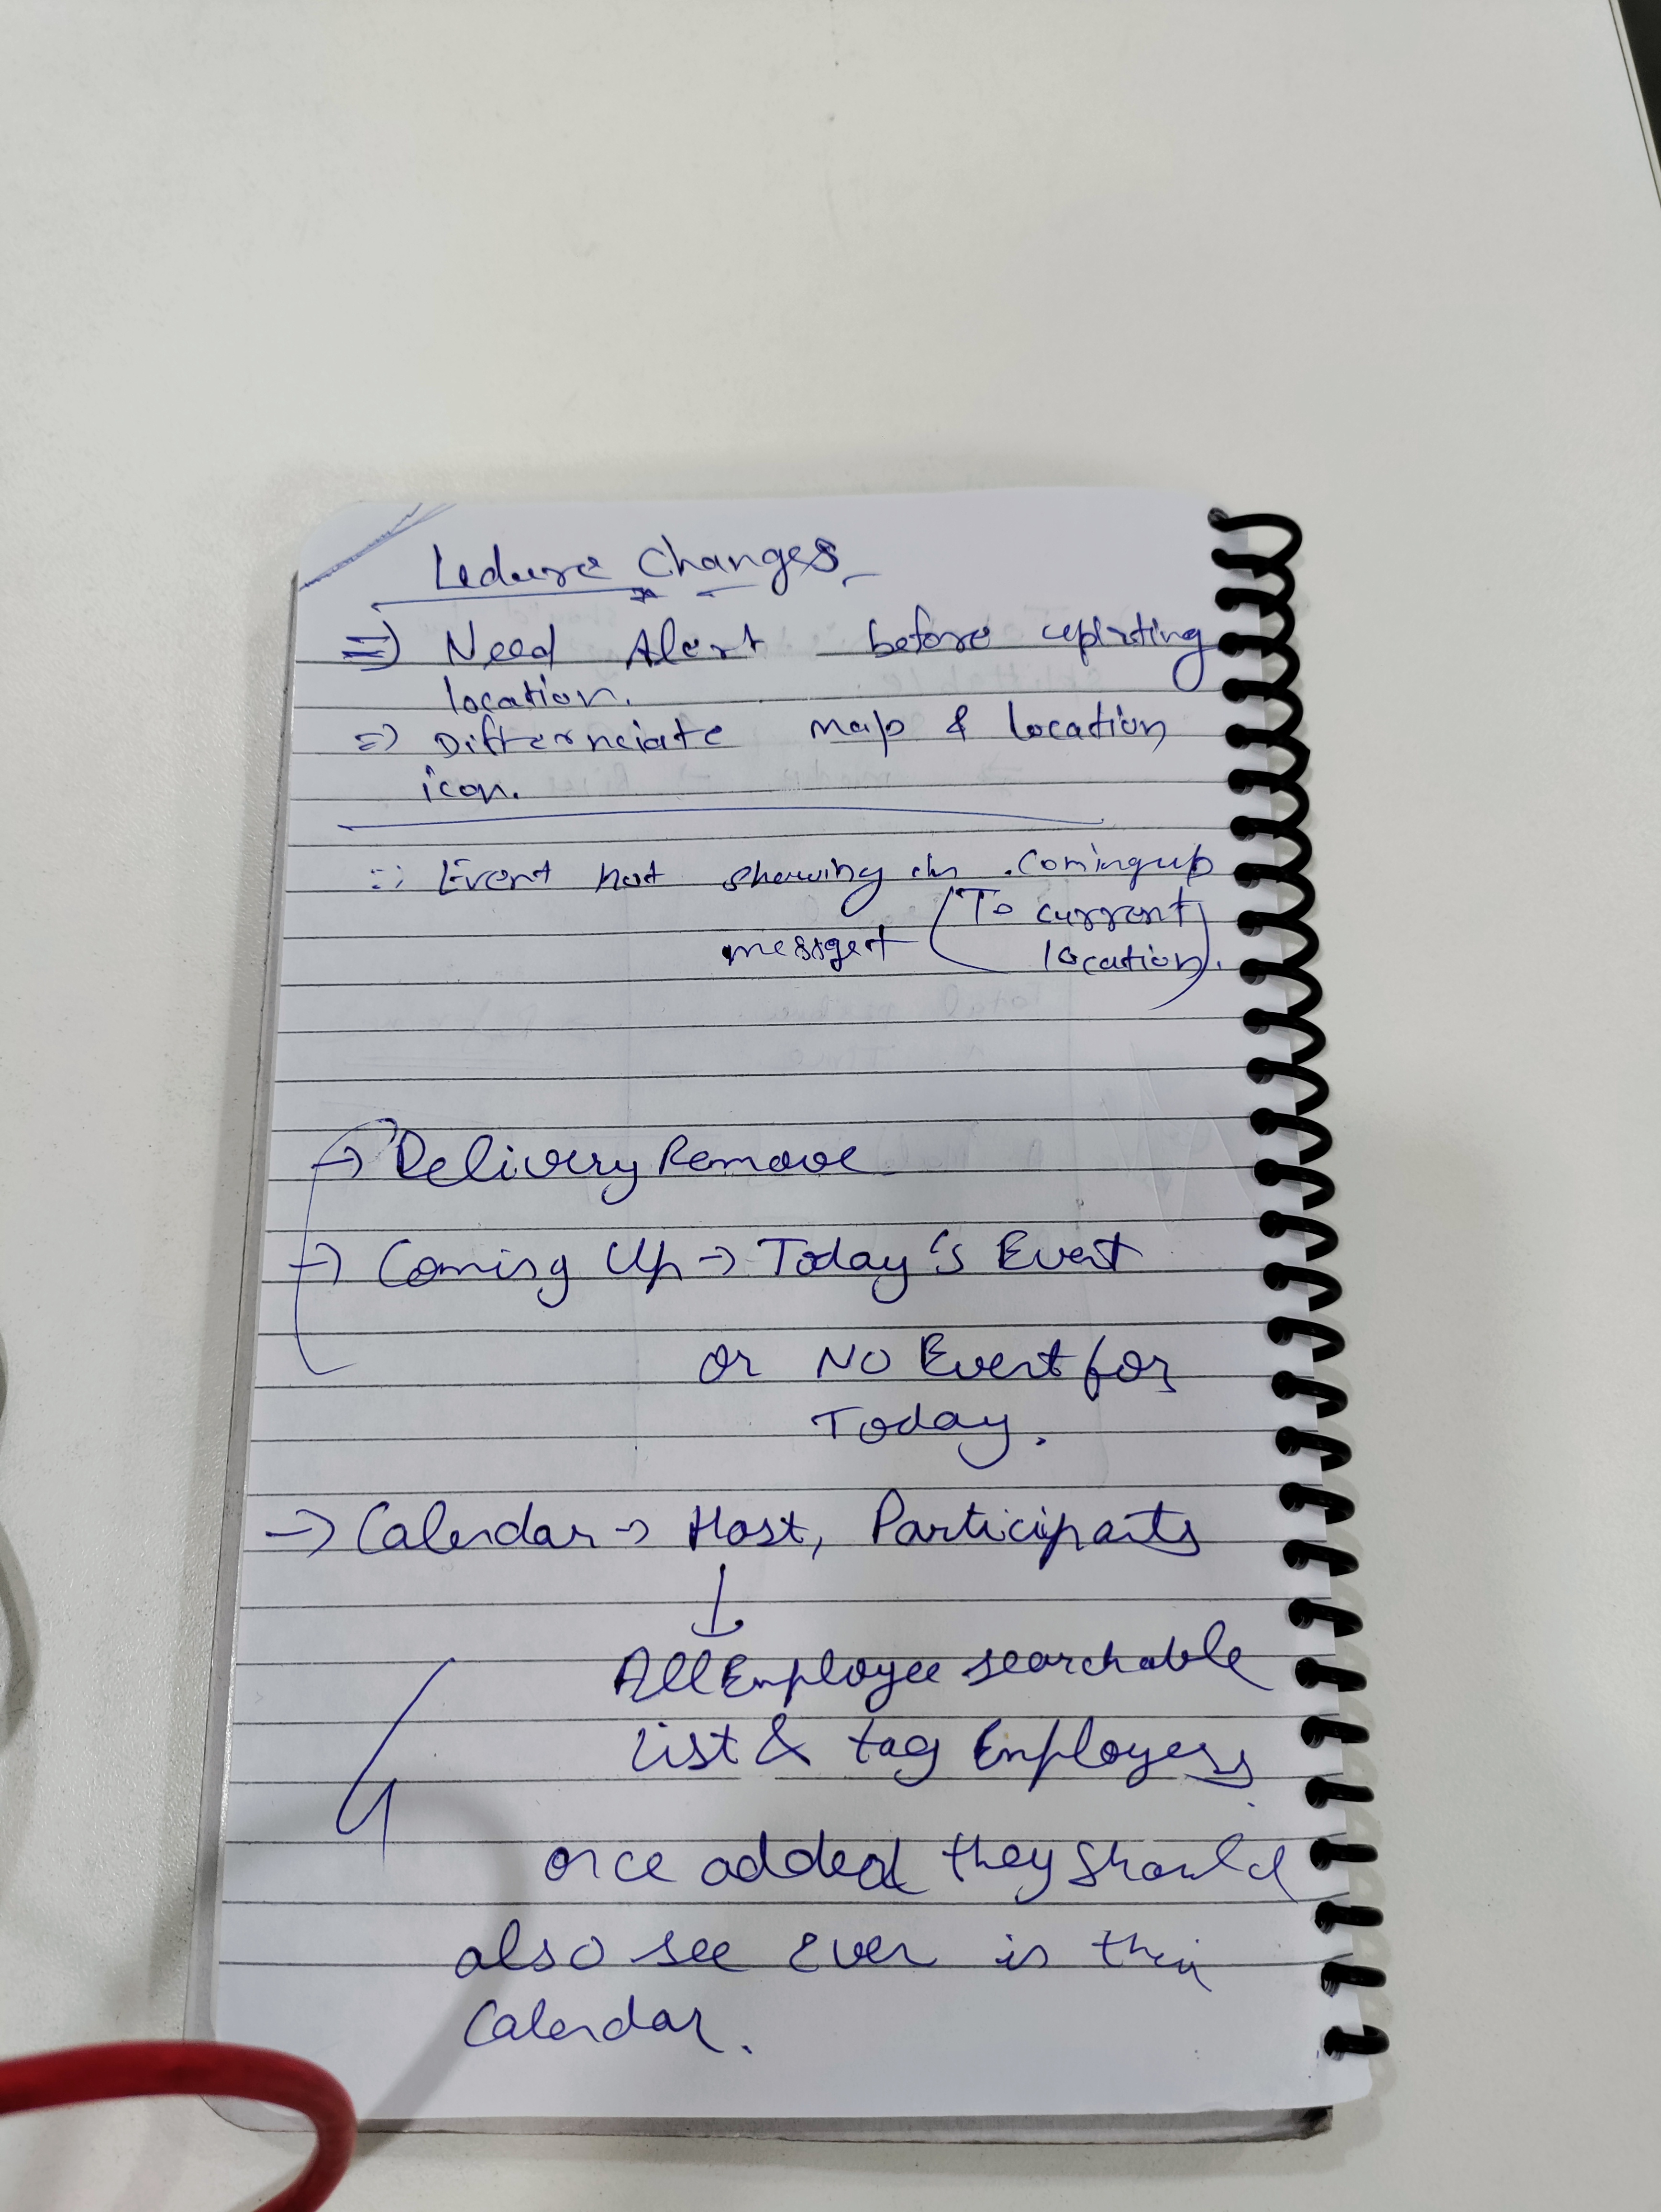 Changes
=> Need Alert before updating
location.
=> Differnciate map & location
icon.
=> Event not showing in Comingup
(To current
location).
-> Delivery Remove
-> Coming Up -> Today's Event
or No Event for
Today.
-> Calendar -> Host, Participants
↓
All Employee searchable
List & tag Employees
once added they should
also see Even in their
Calendar.